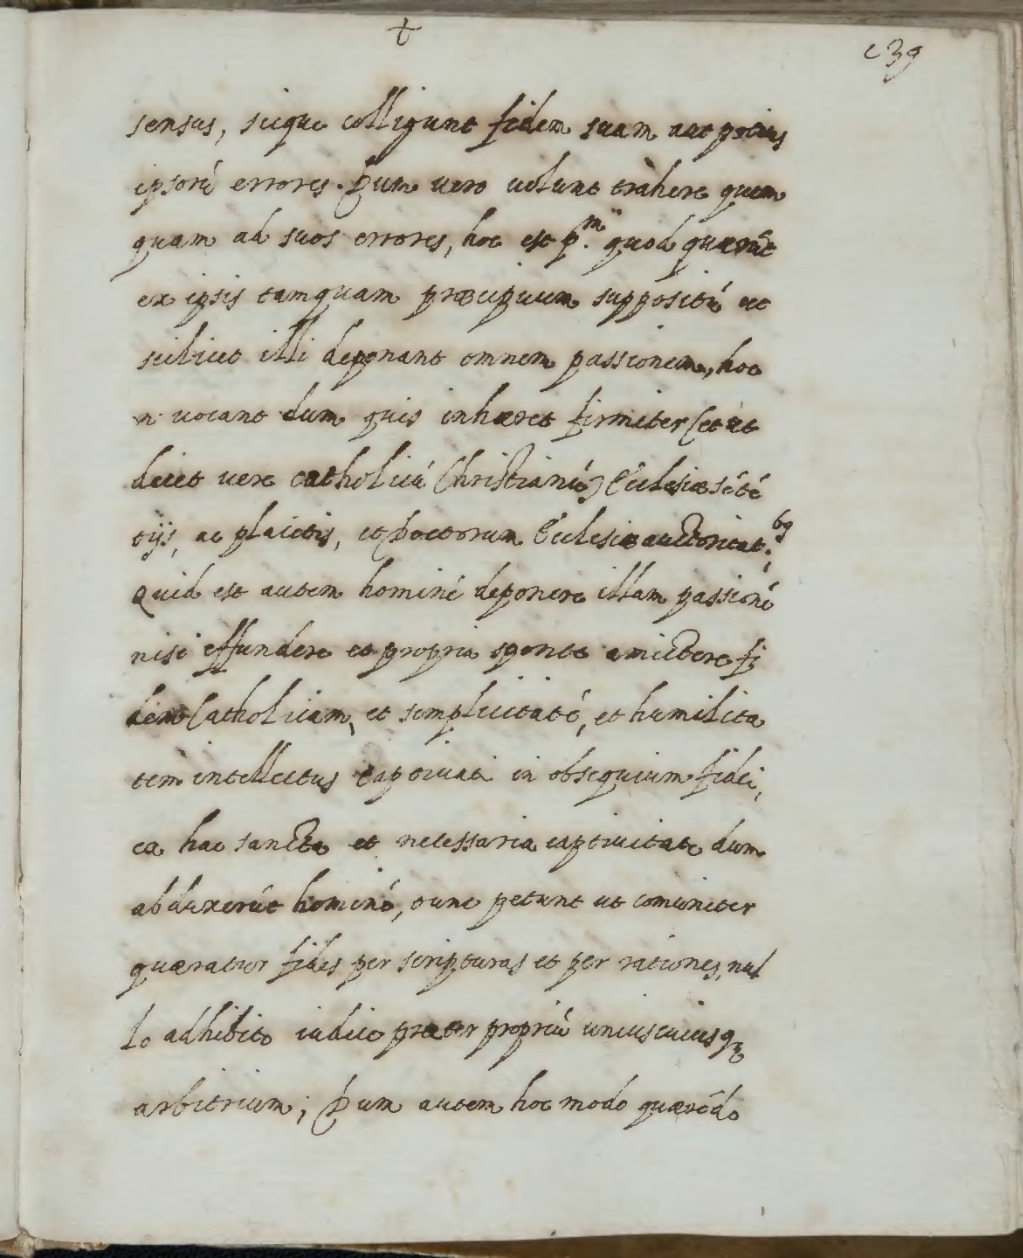 t
c 39
sensus, sicque colligunt fidem suam aut potius
ipsorū errores. Dum vero volunt trahere quem
quam ad suos errores, hoc est p.m quod quærūt
ex ipsis tamquam præcipuum suppositū ut
scilicet illi deponant omnem passionem, hoc
n. vocant dum quis inhæret firmiter (et ut
decet vere catholicū Christianū) Ecclesiæ sētē
tijs, ac placitis, et Doctorum Ecclesiæ auctoritat.bg
Quid est autem hominē deponere illam passionē
nisi effundere et propria sponte amictere fi
dem Catholicam, et simplicitatē, et humilita
tem intellectus captivati in obsequium fidei,
ea hac sancta et necessaria captivitate dum
abduxerūt hominē, tunc petunt ut comūniter
quæratur fides per scripturas et per rationes, nul
lo adhibito iudice præter propriū uniuscuiusq3
arbitrium; Dum autem hoc modo quærēdo